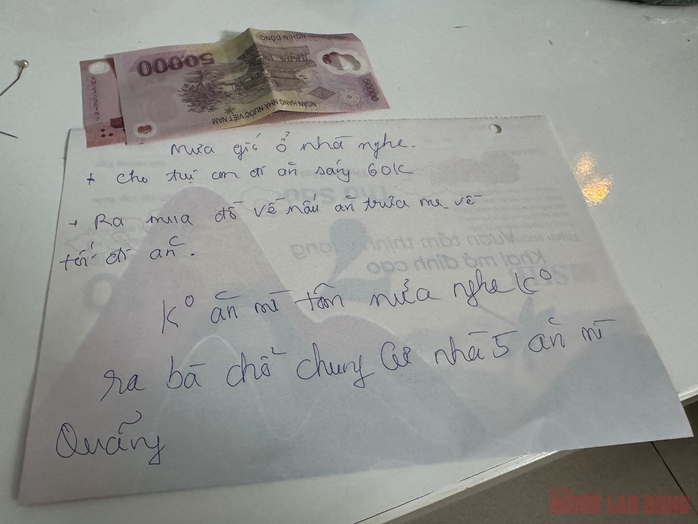 50000
NGÂN HÀNG NHÀ NƯỚC VIỆT NAM
mưa gió ở nhà nghe.
+ cho tụi con đi ăn sáng 60K
+ Ra mua đồ về nấu ăn trưa mẹ về
tối đi ăn.
K⁰ ăn mì tôm nửa nghe K⁰
ra bà chổ chung cư nhà 5 ăn mì
Quãng
NGƯỜI LAO ĐỘNG